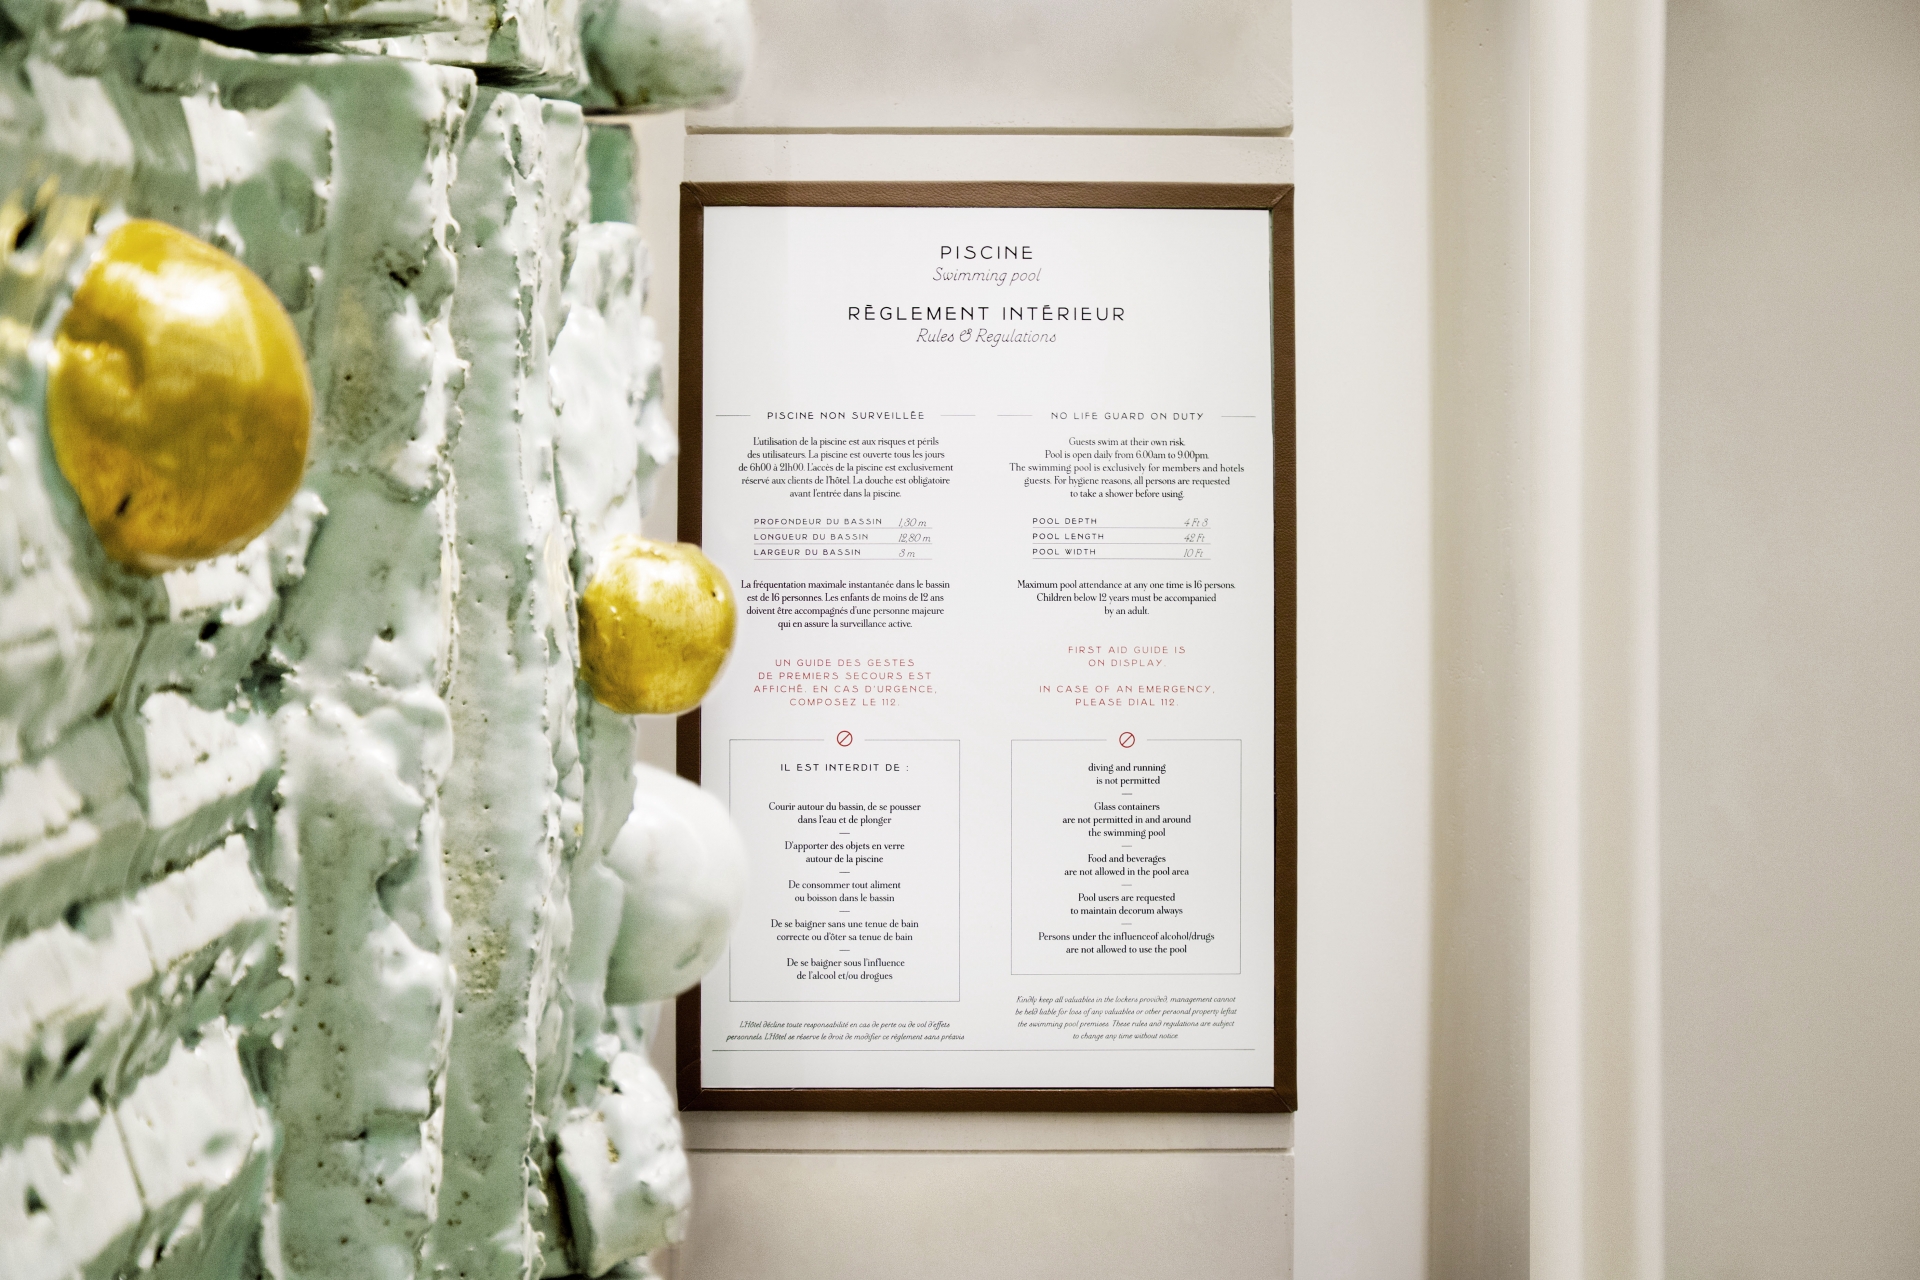 PISCINE
Swimming pool
RÈGLEMENT INTÉRIEUR
Rules & Regulations
PISCINE NON SURVEILLÉE
L'utilisation de la piscine est aux risques et périls
des utilisateurs. La piscine est ouverte tous les jours
de 6h00 à 21h00. L'accès de la piscine est exclusivement
réservé aux clients de l'hôtel. La douche est obligatoire
avant l'entrée dans la piscine.
PROFONDEUR DU BASSIN 1,30 m
LONGUEUR DU BASSIN 12,80 m
LARGEUR DU BASSIN 3 m
La fréquentation maximale instantanée dans le bassin
est de 16 personnes. Les enfants de moins de 12 ans
doivent être accompagnés d'une personne majeure
qui en assure la surveillance active.
UN GUIDE DES GESTES
DE PREMIERS SECOURS EST
AFFICHÉ. EN CAS D'URGENCE,
COMPOSEZ LE 112.
IL EST INTERDIT DE :
Courir autour du bassin, de se pousser
dans l'eau et de plonger
—
D'apporter des objets en verre
autour de la piscine
—
De consommer tout aliment
ou boisson dans le bassin
—
De se baigner sans une tenue de bain
correcte ou d'ôter sa tenue de bain
—
De se baigner sous l'influence
de l'alcool et/ou drogues
L'Hôtel décline toute responsabilité en cas de perte ou de vol d'effets
personnels. L'Hôtel se réserve le droit de modifier ce règlement sans préavis
NO LIFE GUARD ON DUTY
Guests swim at their own risk.
Pool is open daily from 6.00am to 9.00pm.
The swimming pool is exclusively for members and hotels
guests. For hygiene reasons, all persons are requested
to take a shower before using.
POOL DEPTH 4 Ft 3
POOL LENGTH 42 Ft
POOL WIDTH 10 Ft
Maximum pool attendance at any one time is 16 persons.
Children below 12 years must be accompanied
by an adult.
FIRST AID GUIDE IS
ON DISPLAY.
IN CASE OF AN EMERGENCY,
PLEASE DIAL 112.
diving and running
is not permitted
—
Glass containers
are not permitted in and around
the swimming pool
—
Food and beverages
are not allowed in the pool area
—
Pool users are requested
to maintain decorum always
—
Persons under the influenceof alcohol/drugs
are not allowed to use the pool
Kindly keep all valuables in the lockers provided, management cannot
be held liable for loss of any valuables or other personal property leftat
the swimming pool premises. These rules and regulations are subject
to change any time without notice